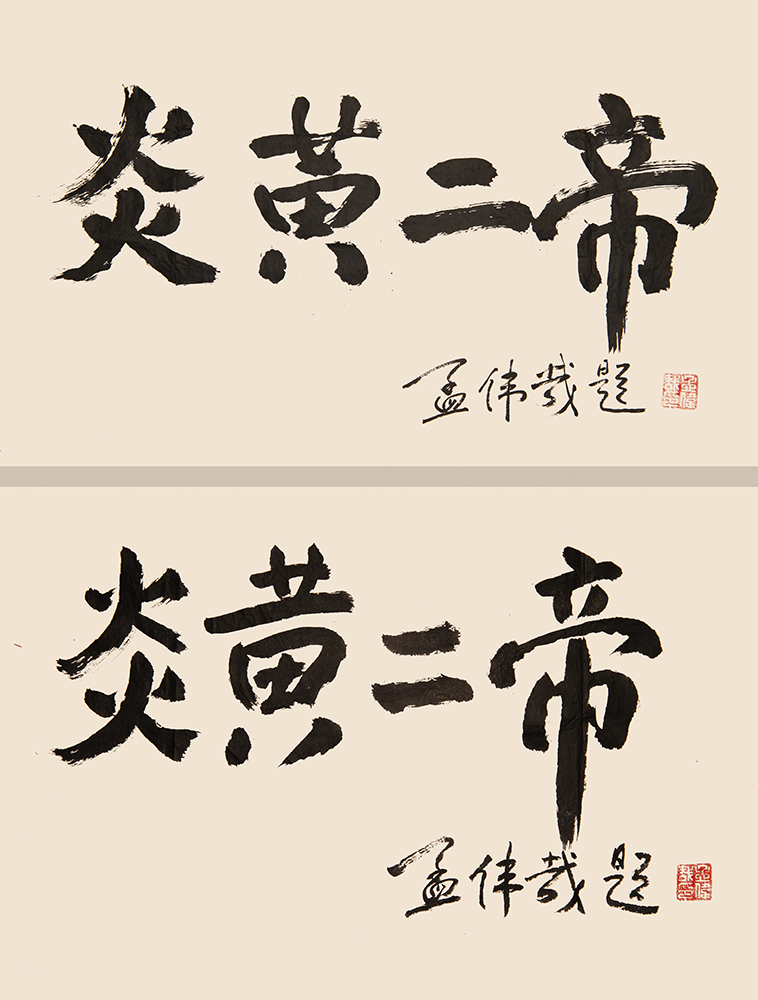 炎黄二帝
孟伟哉题
炎黄二帝
孟伟哉题